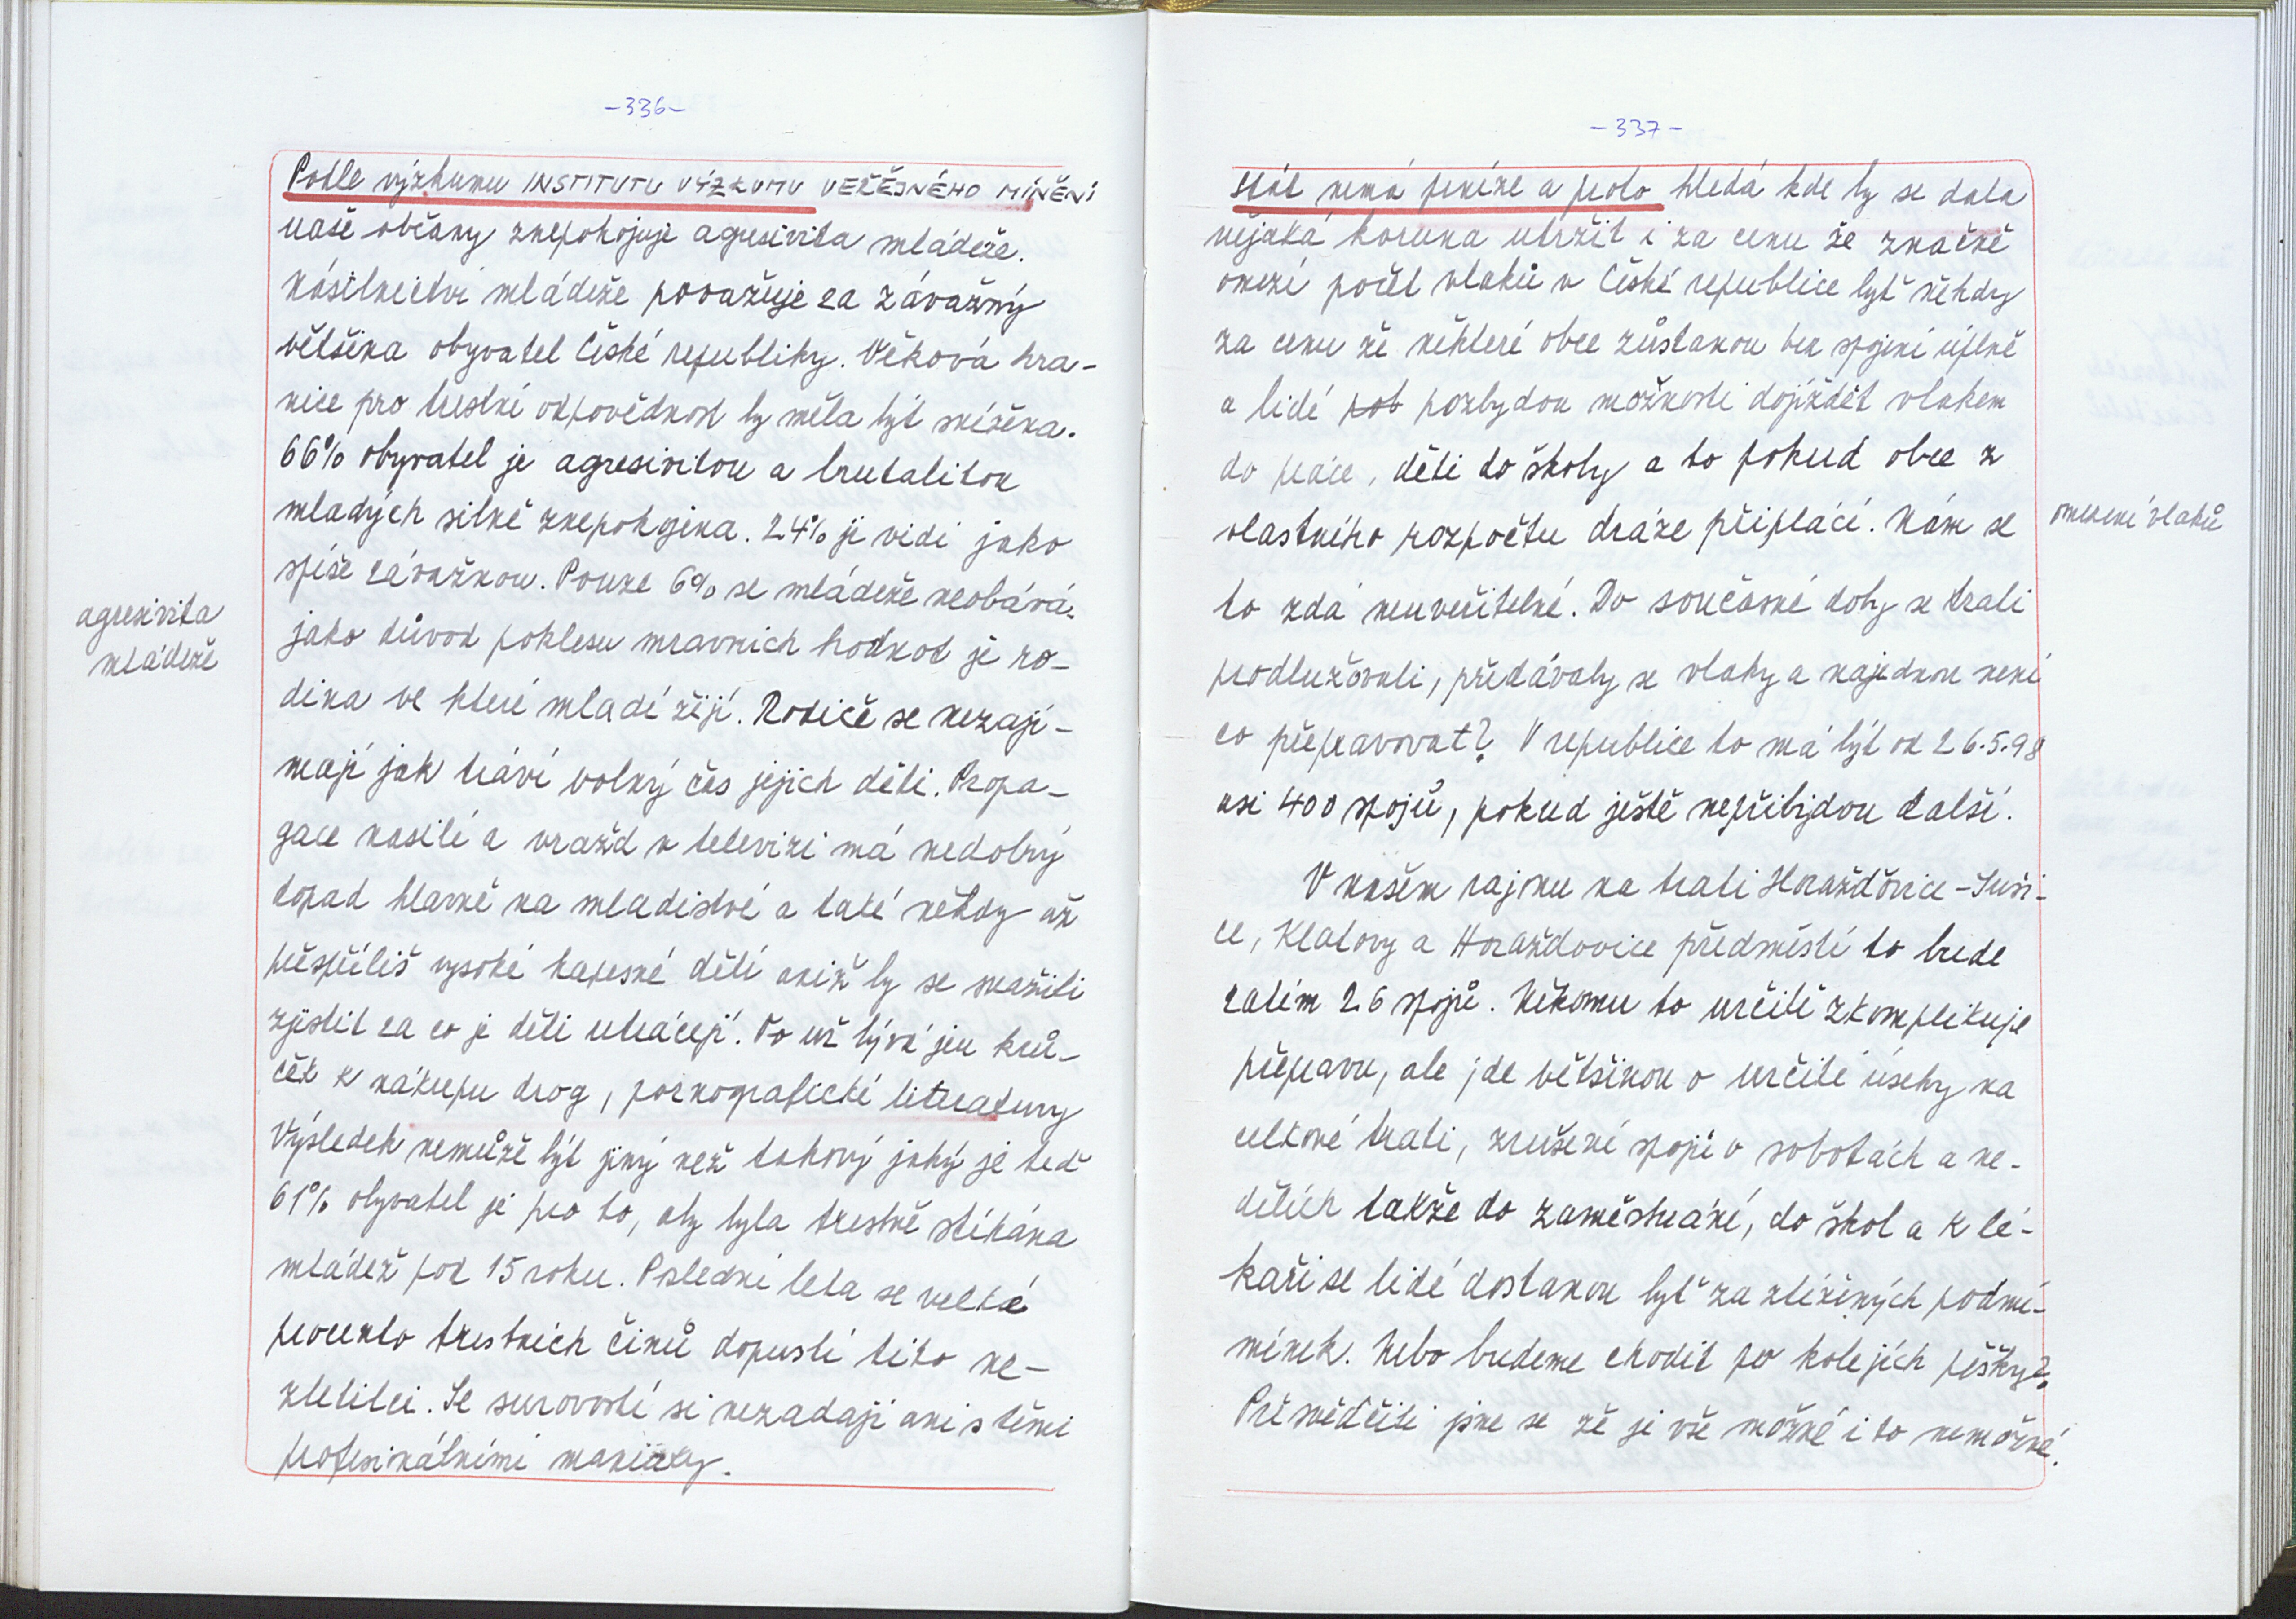 -336-
Podle výzkumu INSTITUTU VÝZKUMU VEŘEJNÉHO MÍNĚNÍ
naše občany znepokojuje agresivita mládeže.
Násilnictví mládeže považuje za závažný
většina obyvatel České republiky. Věková hra-
nice pro trestní odpovědnost by měla být snížena.
66% obyvatel je agresivitou a brutalitou
mladých silně znepokojena. 24% ji vidí jako
spíše závažnou. Pouze 6% se mládeže neobává.
jako důvod poklesu mravních hodnot je ro-
dina ve které mladí žijí. Rodiče se nezají-
mají jak tráví volný čas jejich děti. Propa-
gace násilí a vražd v televizi má nedobrý
dopad hlavně na mladistvé a také někdy až
přespříliš vysoké kapesné dětí aniž by se snažili
zjistit za co je děti utrácejí. To už bývá jen krů-
ček k nákupu drog, pornografické literatury
Výsledek nemůže být jiný než takový jaký je teď
61% obyvatel je pro to, aby byla trestně stíhána
mládež pod 15 roku. Poslední léta se velké
procento trestních činů dopustí tito ne-
zletilci. Se surovostí si nezadají ani s těmi
profesionálními maniaky.
agresivita
mládeže
-337-
Stát nemá peníze a proto hledá kde by se dala
nějaká koruna utržit i za cenu že značně
omezí počet vlaků v České republice byť někdy
za cenu že některé obce zůstanou bez spojení úplně
a lidé pob pozbydou možnosti dojíždět vlakem
do práce, děti do školy a to pokud obce z
vlastního rozpočtu dráze připlácí. Nám se
to zdá neuveřitelné. Do současné doby se trati
prodlužovali, přidávaly se vlaky a najednou není
co přepravovat? V republice to má být od 26.5.98
asi 400 spojů, pokud ještě nepřibydou další.
V našem rajonu na trati Horažďovice - Suši-
ce, Klatovy a Horažďovice předměstí to bude
zatím 26 spojů. Někomu to určitě zkomplikuje
přepravu, ale jde většinou o určité úseky na
celkové trati, zrušení spojů v sobotách a ne-
dělích takže do zaměstnání, do škol a k lé-
kaři se lidé dostanou byť za ztížených podmí-
mínek. Nebo budeme chodit po kolejích pěšky?
Přesvědčili jsme se že je vše možné i to nemožné.
omezení vlaků